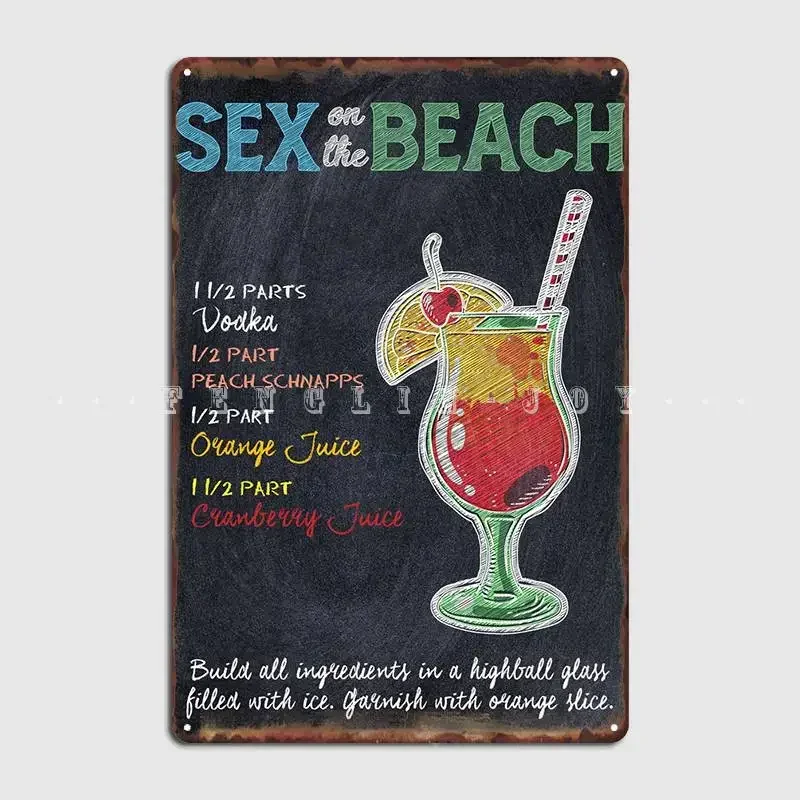 SEX on the BEACH
1 1/2 PARTS
Vodka
1/2 PART
PEACH SCHNAPPS
FENGLIN-JOY
1/2 PART
Orange Juice
1 1/2 PART
Cranberry Juice
Build all ingredients in a highball glass
filled with ice. Garnish with orange slice.